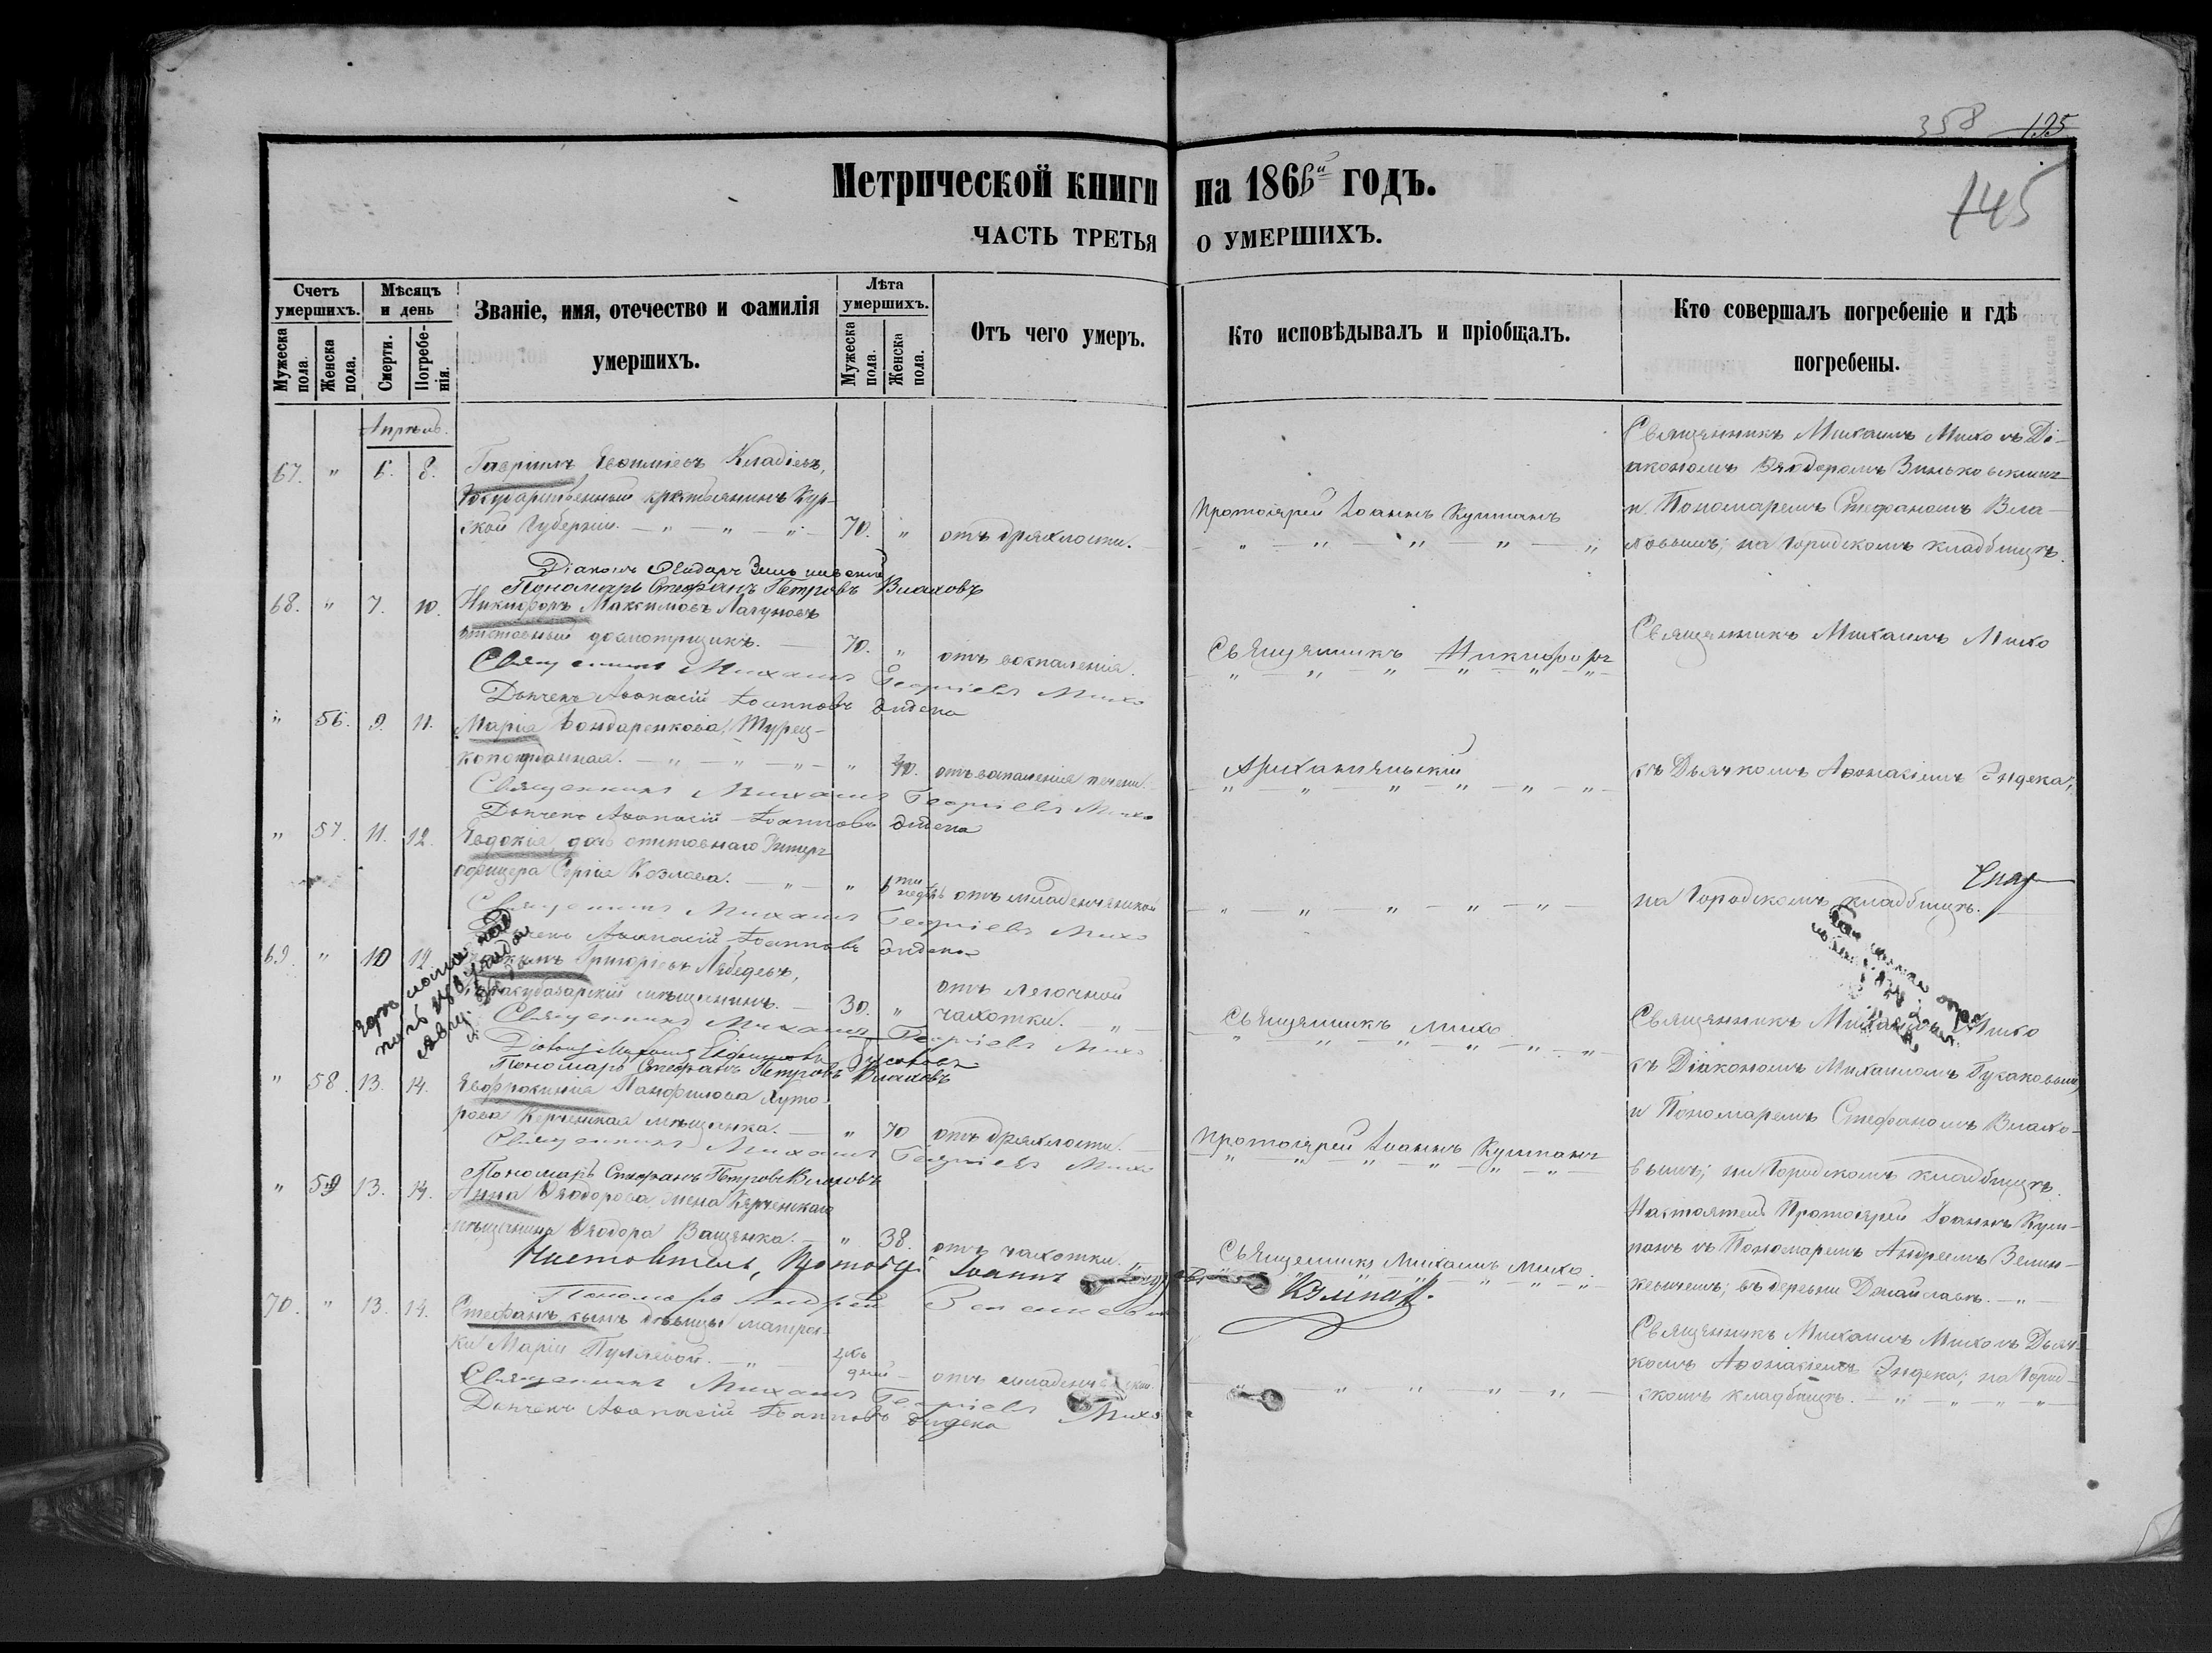 358 195
145
Метрической книги на 1866й годъ.
ЧАСТЬ ТРЕТЬЯ О УМЕРШИХЪ.
Счетъ умершихъ.
Мужеска пола.
Женска пола.
Мѣсяцъ и день
Смерти.
Погребенія.
Званіе, имя, отечество и фамилія умершихъ.
Лѣта умершихъ.
Мужеска пола.
Женска пола.
Отъ чего умеръ.
Кто исповѣдывалъ и пріобщалъ.
Кто совершалъ погребеніе и гдѣ погребены.
Апрѣль.
67. " 6. 8. Гавріилъ Евфиміевъ
Государственный крестьянинъ Кур-
ской Губерніи. — " — " — " 70. " отъ дряхлости.
Протоіерей Іоаннъ Кумпанъ
Священникъ Михаилъ Михо съ Ді-
акономъ Ѳеодоромъ Зиньковскимъ
и Пономаремъ Стефаномъ Вла-
ховымъ; на Городскомъ кладбищѣ.
Діаконъ Ѳеодоръ
Пономарь Стефанъ Петровъ Влаховъ
68. " 7. 10. Никифоръ Максимовъ Лагуновъ
отставный досмотрщикъ. — 70. " отъ воспаленія.
Священникъ Никифоръ
Священникъ Михаилъ Михо
Священникъ Михаилъ Георгіевъ Михо
Дьячекъ Аѳанасій Іоанновъ Индека
" 56. 9. 11. Марія Бондаренкова, Турец-
коподданная. — " — " — " — " 40. отъ воспаленія печени.
съ Дьячкомъ Аѳанасіемъ Индека;
Священникъ Михаилъ Георгіевъ Михо
Дьячекъ Аѳанасій Іоанновъ Индека
" 57. 11. 12. Евдокія, дочь отставнаго Унтеръ
офицера Сергія Козлова. — " — " 6ти недѣль отъ младенческой
на Городскомъ кладбищѣ.
Священникъ Михаилъ Георгіевъ Михо
Дьячекъ Аѳанасій Іоанновъ Индека
69. " 10 12. Григорьевъ Лебедевъ,
мѣщанинъ. — 30. " отъ легочной
чахотки. — " —
Священникъ Михо
Священникъ Михаилъ Михо
Священникъ Михаилъ Георгіевъ Михо
съ Діакономъ Михаиломъ Гусаковымъ
Пономарь Стефанъ Петровъ Влаховъ
" 58. 13. 14. Евфросинія Панфилова Хуто-
рова Керченская мѣщанка. — " 70 отъ дряхлости.
Протоіерей Іоаннъ Кумпанъ
и Пономаремъ Стефаномъ Влахо-
вымъ; на Городскомъ кладбищѣ.
Священникъ Михаилъ Георгіевъ Михо
Пономарь Стефанъ Петровъ Влаховъ
" 59 13. 14. Анна Ѳеодорова, жена Керченскаго
мѣщанина Ѳеодора Ващенка. — " 38. отъ чахотки.
Священникъ Михаилъ Михо.
Настоятель Протоіерей Іоаннъ Кум-
панъ съ Пономаремъ Андреемъ
въ деревни
Настоятель, Протоіер. Іоаннъ Кумпанъ.
Пономарь Андрей
70. " 13. 14. Стефанъ, сынъ вдовицы матрос-
ки Маріи дней — отъ младенческой.
Священникъ Михаилъ Михо съ Дьяч-
комъ Аѳанасіемъ Индека; на Город-
скомъ кладбищѣ. — " — " — " — "
Священникъ Михаилъ Георгіевъ Михо
Дьячекъ Аѳанасій Іоанновъ Индека